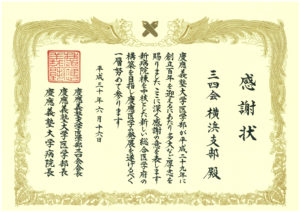 感謝状
三四会 横浜支部 殿
慶應義塾大学医学部が平成二十九年に
創立百年を迎えるにあたり多大なご厚志を
賜りました ここに深く感謝の意を表します
新病院棟を中核とした新しい総合医学府の
構築を目指し慶應医学の発展を遂げるべく
一層努めて参ります
平成三十年六月十六日
慶應義塾大学医学部三四会会長
慶應義塾大学医学部長
慶應義塾大学病院長